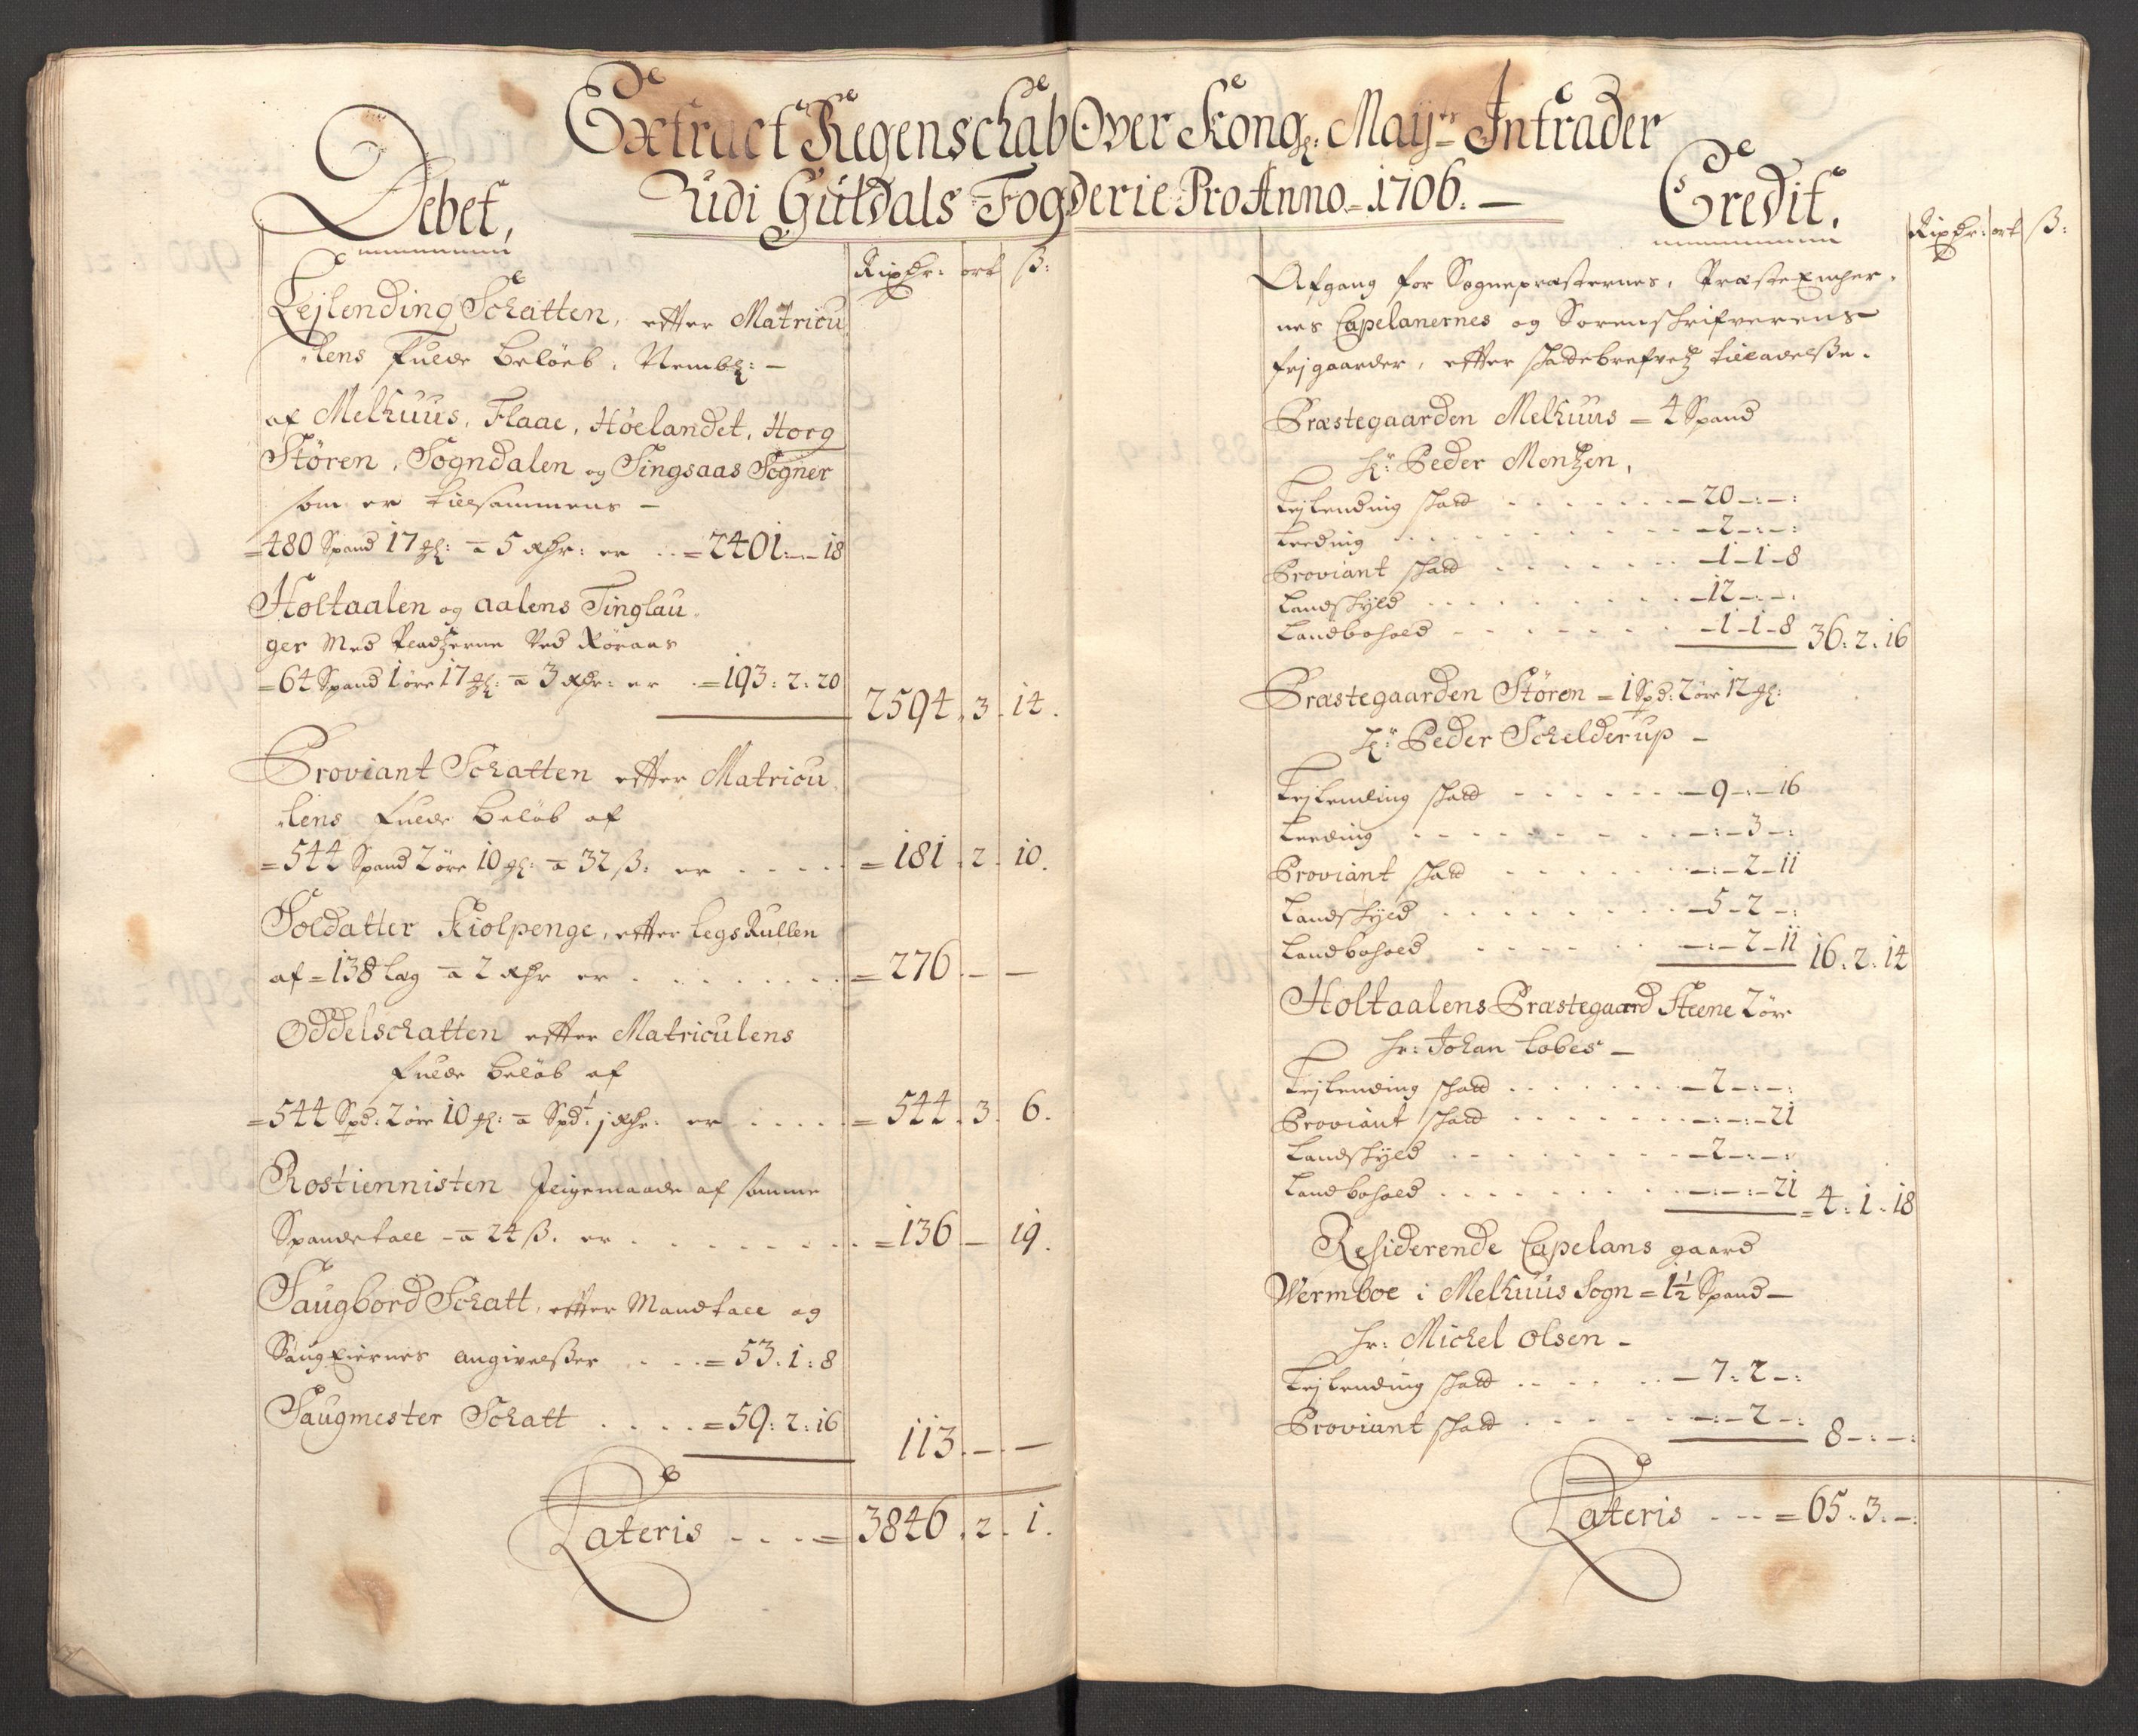 Extract Regenschab Over Kong: Mayts Intrader
Udi Guldals Fogderie Pro Anno 1706. —
Debet,
Rixdr: ort ß:
Lejlending Schatten, efter Matricu
lens Fulde Beløeb, Nembl: —
af Melhuus, Flaae, Høelandet, Horg
Støren, Sogndalen og Singsaas Sogner
som er tilsammens —
= 480 Spand 17 Ml: a 5 Rdr: er .. = 2401: — 18
Holtaalen og Aalens Tinglau
ger Med Pladzerne Ved Røraas
= 64 Spand 1 øre 17 Ml: a 3 Rdr: er . = 193: 2: 20
2594. 3. 14.
Proviant Schatten efter Matricu
lens Fulde Beløb af
= 544 Spand 2 øre 10 Ml: a 32 ß: er . . . . = 181. 2. 10.
Soldatter Kiolpenge, efter Legs Rullen
af = 138 Læg a 2 Rdr er . . . . . . . = 276. — —
Oddelschatten efter Matriculens
Fulde Beløb af
= 544 Spd: 2 øre 10 Ml: a Spdt 1 Rdr. er . . . . = 544. 3. 6.
Rostiennisten Ligemaade af samme
Spandetall - a 24 ß. er . . . . . . . . = 136 — 19.
Saugbord Schatt, efter Mandtall og
Saug Eiernes angivelßer . . . = 53. 1: 8
Saugmester Schatt . . . . = 59: 2: 16
113. — —
Lateris . . . = 3846. 2. 1.
Credit.
Rixdr: ort ß:
Afgang for Sognepræsternes, Præste Encher
nes Capelanernes og Sorenskrifverens
frj gaarder, efter skattebrefvetz tilladelße.
Præstegaarden Melhuus = 4 Spand
Hr: Peder Mentzen,
Lejlending skatt . . . . . . — 20 —:—:
Leeding . . . . . . . . . — 2 —:—:
Proviant skatt . . . . . . — 1 — 1 — 8
Landskyld . . . . . . . . — 12 —:—:
Landbohold . . . . . . . — 1 — 1 — 8 36: 2: 16
Præstegaarden Støren = 1 Spd: 2 øre 12 Ml:
Hr: Peder Schelderup —
Lejlending skatt . . . . . . — 9 —:— 16
Leeding . . . . . . . . . —:— 3 —:
Proviant skatt . . . . . . —:— 2 — 11
Landskyld . . . . . . . . — 5 — 2 —:
Landbohold . . . . . . —:— 2 — 11 16. 2. 14
Holtaalens Præstegaard Steene 2 øre
hr: Johan Lobes —
Lejlending skatt . . . . . . — 2 —:—:
Proviant skatt . . . . . . . —:—:— 21
Landskyld . . . . . . . . — 2 —:—:
Landbohold . . . . . . . . —:—:— 21 = 4. 1. 18
Residerende Capelans gaard
Wermboe i Melhuus Sogn = 1½ Spand —
hr: Michel Olsen —
Lejlending skatt . . . . . — 7: 2 —:
Proviant skatt . . . . . —:— 2 —: 8 —:—:
Lateris . . . = 65. 3. —: